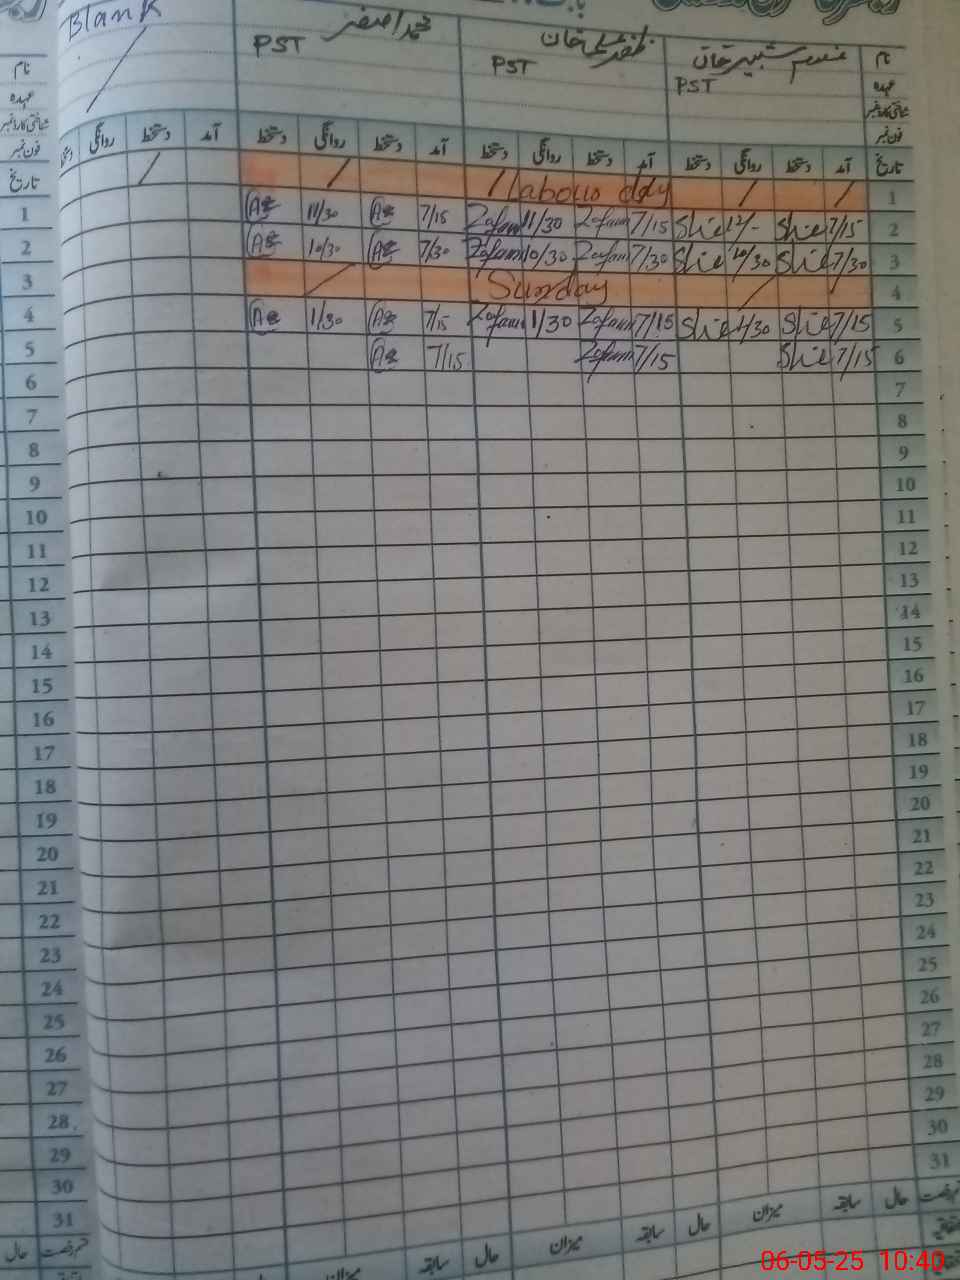 Blank
محمد اصغر
PST
ظفر علی خان
PST
غلام شبیر خان
PST
نام
عہدہ
شناختی کارڈ نمبر
فون نمبر
تاریخ
آمد دستخط روانگی دستخط آمد دستخط روانگی دستخط آمد دستخط روانگی دستخط آمد دستخط روانگی دستخط
1 Labour day
2 11/30 7/15 Zafar 11/30 Zafar 7/15 12/- 7/15
3 10/30 7/30 Zafar 10/30 Zafar 7/30 10/30 7/30
4 Sunday
5 1/30 7/15 Zafar 1/30 Zafar 7/15 1/30 7/15
6 7/15 Zafar 7/15 7/15
7
8
9
10
11
12
13
14
15
16
17
18
19
20
21
22
23
24
25
26
27
28
29
30
31
حال سابقہ میزان حال سابقہ میزان حال سابقہ میزان
نام
عہدہ
شناختی کارڈ نمبر
فون نمبر
تاریخ
1
2
3
4
5
6
7
8
9
10
11
12
13
14
15
16
17
18
19
20
21
22
23
24
25
26
27
28
29
30
31
حال
06-05-25 10:40